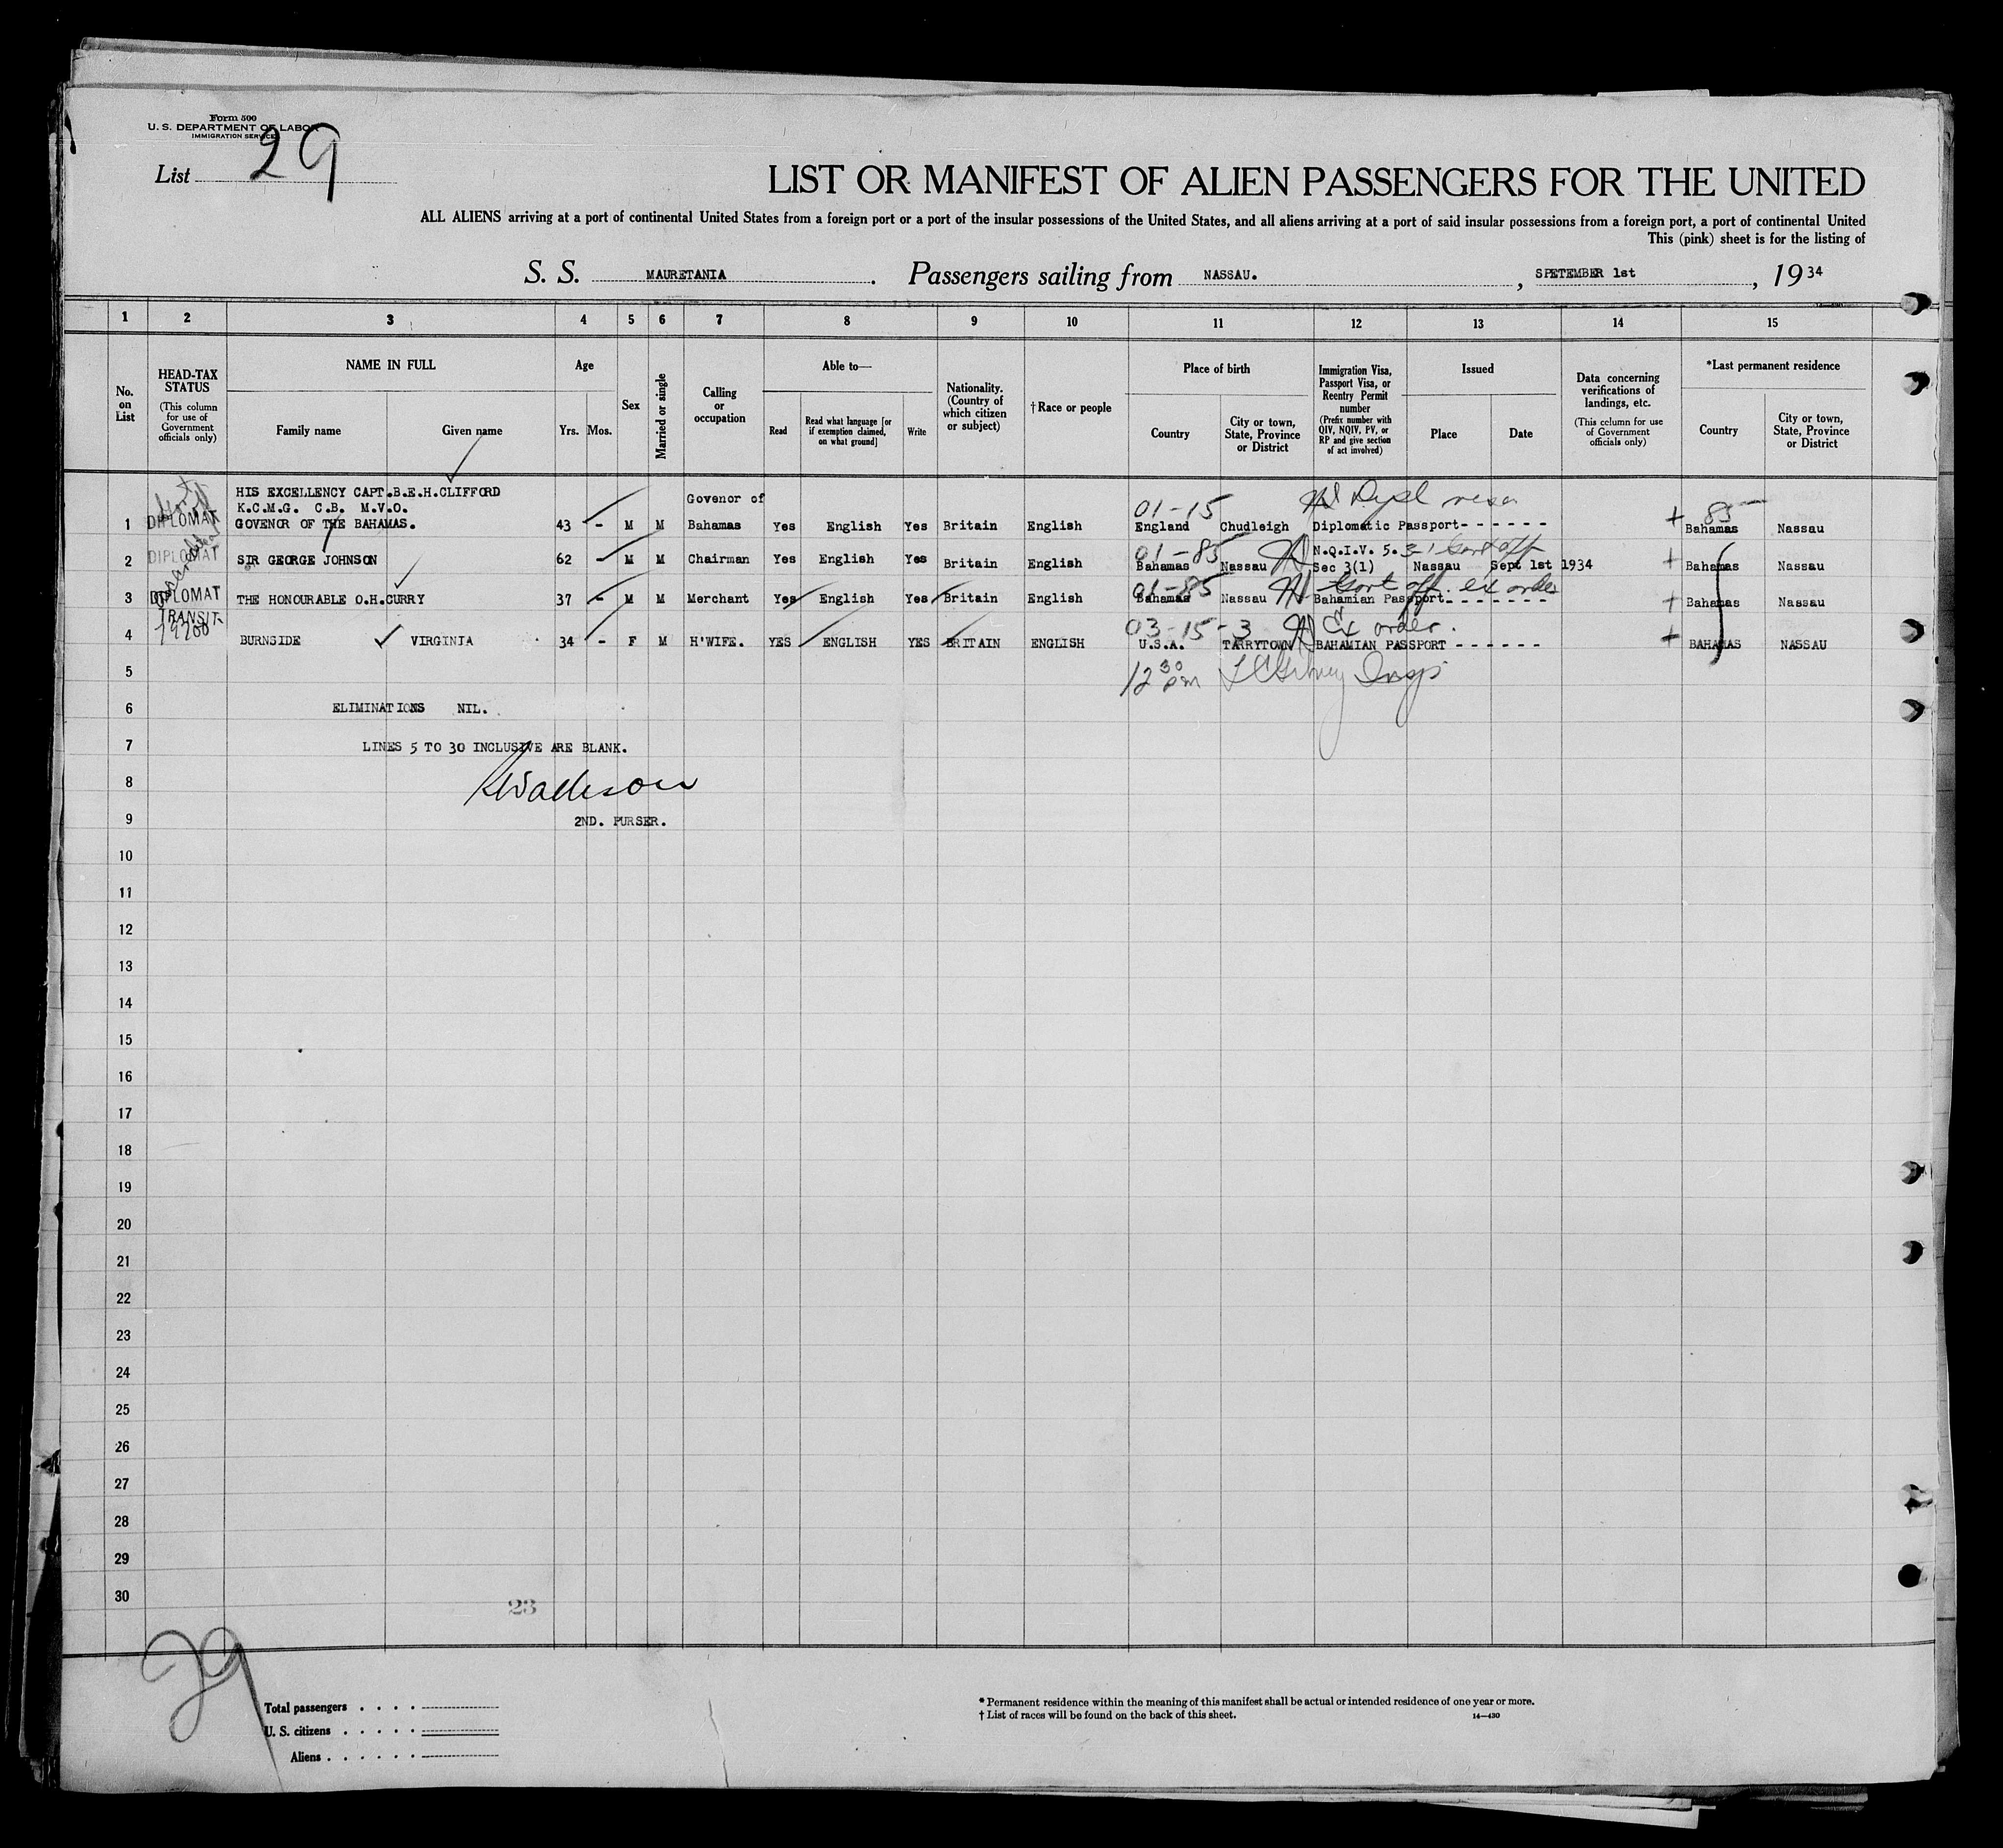 Form 500
U. S. DEPARTMENT OF LABOR
IMMIGRATION SERVICE
List 29
LIST OR MANIFEST OF ALIEN PASSENGERS FOR THE UNITED
ALL ALIENS arriving at a port of continental United States from a foreign port or a port of the insular possessions of the United States, and all aliens arriving at a port of said insular possessions from a foreign port, a port of continental United
This (pink) sheet is for the listing of
S. S. MAURETANIA. Passengers sailing from NASSAU. , SPETEMBER 1st , 1934
1 2 3 4 5 6 7 8 9 10 11 12 13 14 15
No. on List
HEAD-TAX STATUS (This column for use of Government officials only)
NAME IN FULL
Family name Given name
Age
Yrs. Mos.
Sex
Married or single
Calling or occupation
Able to—
Read Read what language [or if exemption claimed, on what ground] Write
Nationality. (Country of which citizen or subject)
† Race or people
Place of birth
Country City or town, State, Province or District
Immigration Visa, Passport Visa, or Reentry Permit number (Prefix number with QIV, NQIV, PV, or RP and give section of act involved)
Issued
Place Date
Data concerning verifications of landings, etc. (This column for use of Government officials only)
*Last permanent residence
Country City or town, State, Province or District
HIS EXCELLENCY CAPT.B.E.H.CLIFFORD
K.C.M.G. C.B. M.V.O. Govenor of 01-15 85
1 DIPLOMAT GOVENOR OF THE BAHAMAS. 43 - M M Bahamas Yes English Yes Britain English England Chudleigh Diplomatic Passport- - - - - - Bahamas Nassau
01-85 N.Q.I.V. 5.
2 DIPLOMAT SIR GEORGE JOHNSON 62 - M M Chairman Yes English Yes Britain English Bahamas Nassau Sec 3(1) Nassau Sept 1st 1934 Bahamas Nassau
01-85 Govt off. ex order
3 DIPLOMAT THE HONOURABLE O.H.CURRY 37 - M M Merchant Yes English Yes Britain English Bahamas Nassau Bahamian Passport- - - - - - - Bahamas Nassau
TRANSIT 03-15-3 Ex order.
4 BURNSIDE VIRGINIA 34 - F M H'WIFE. YES ENGLISH YES BRITAIN ENGLISH U.S.A. TARRYTOWN BAHAMIAN PASSPORT - - - - - - BAHAMAS NASSAU
5 12 30 pm
6 ELIMINATIONS NIL.
7 LINES 5 TO 30 INCLUSIVE ARE BLANK.
8
9 2ND. PURSER.
10
11
12
13
14
15
16
17
18
19
20
21
22
23
24
25
26
27
28
29
30
23
29
Total passengers . . . .
U. S. citizens . . . . .
Aliens . . . . . .
* Permanent residence within the meaning of this manifest shall be actual or intended residence of one year or more.
† List of races will be found on the back of this sheet. 14—430